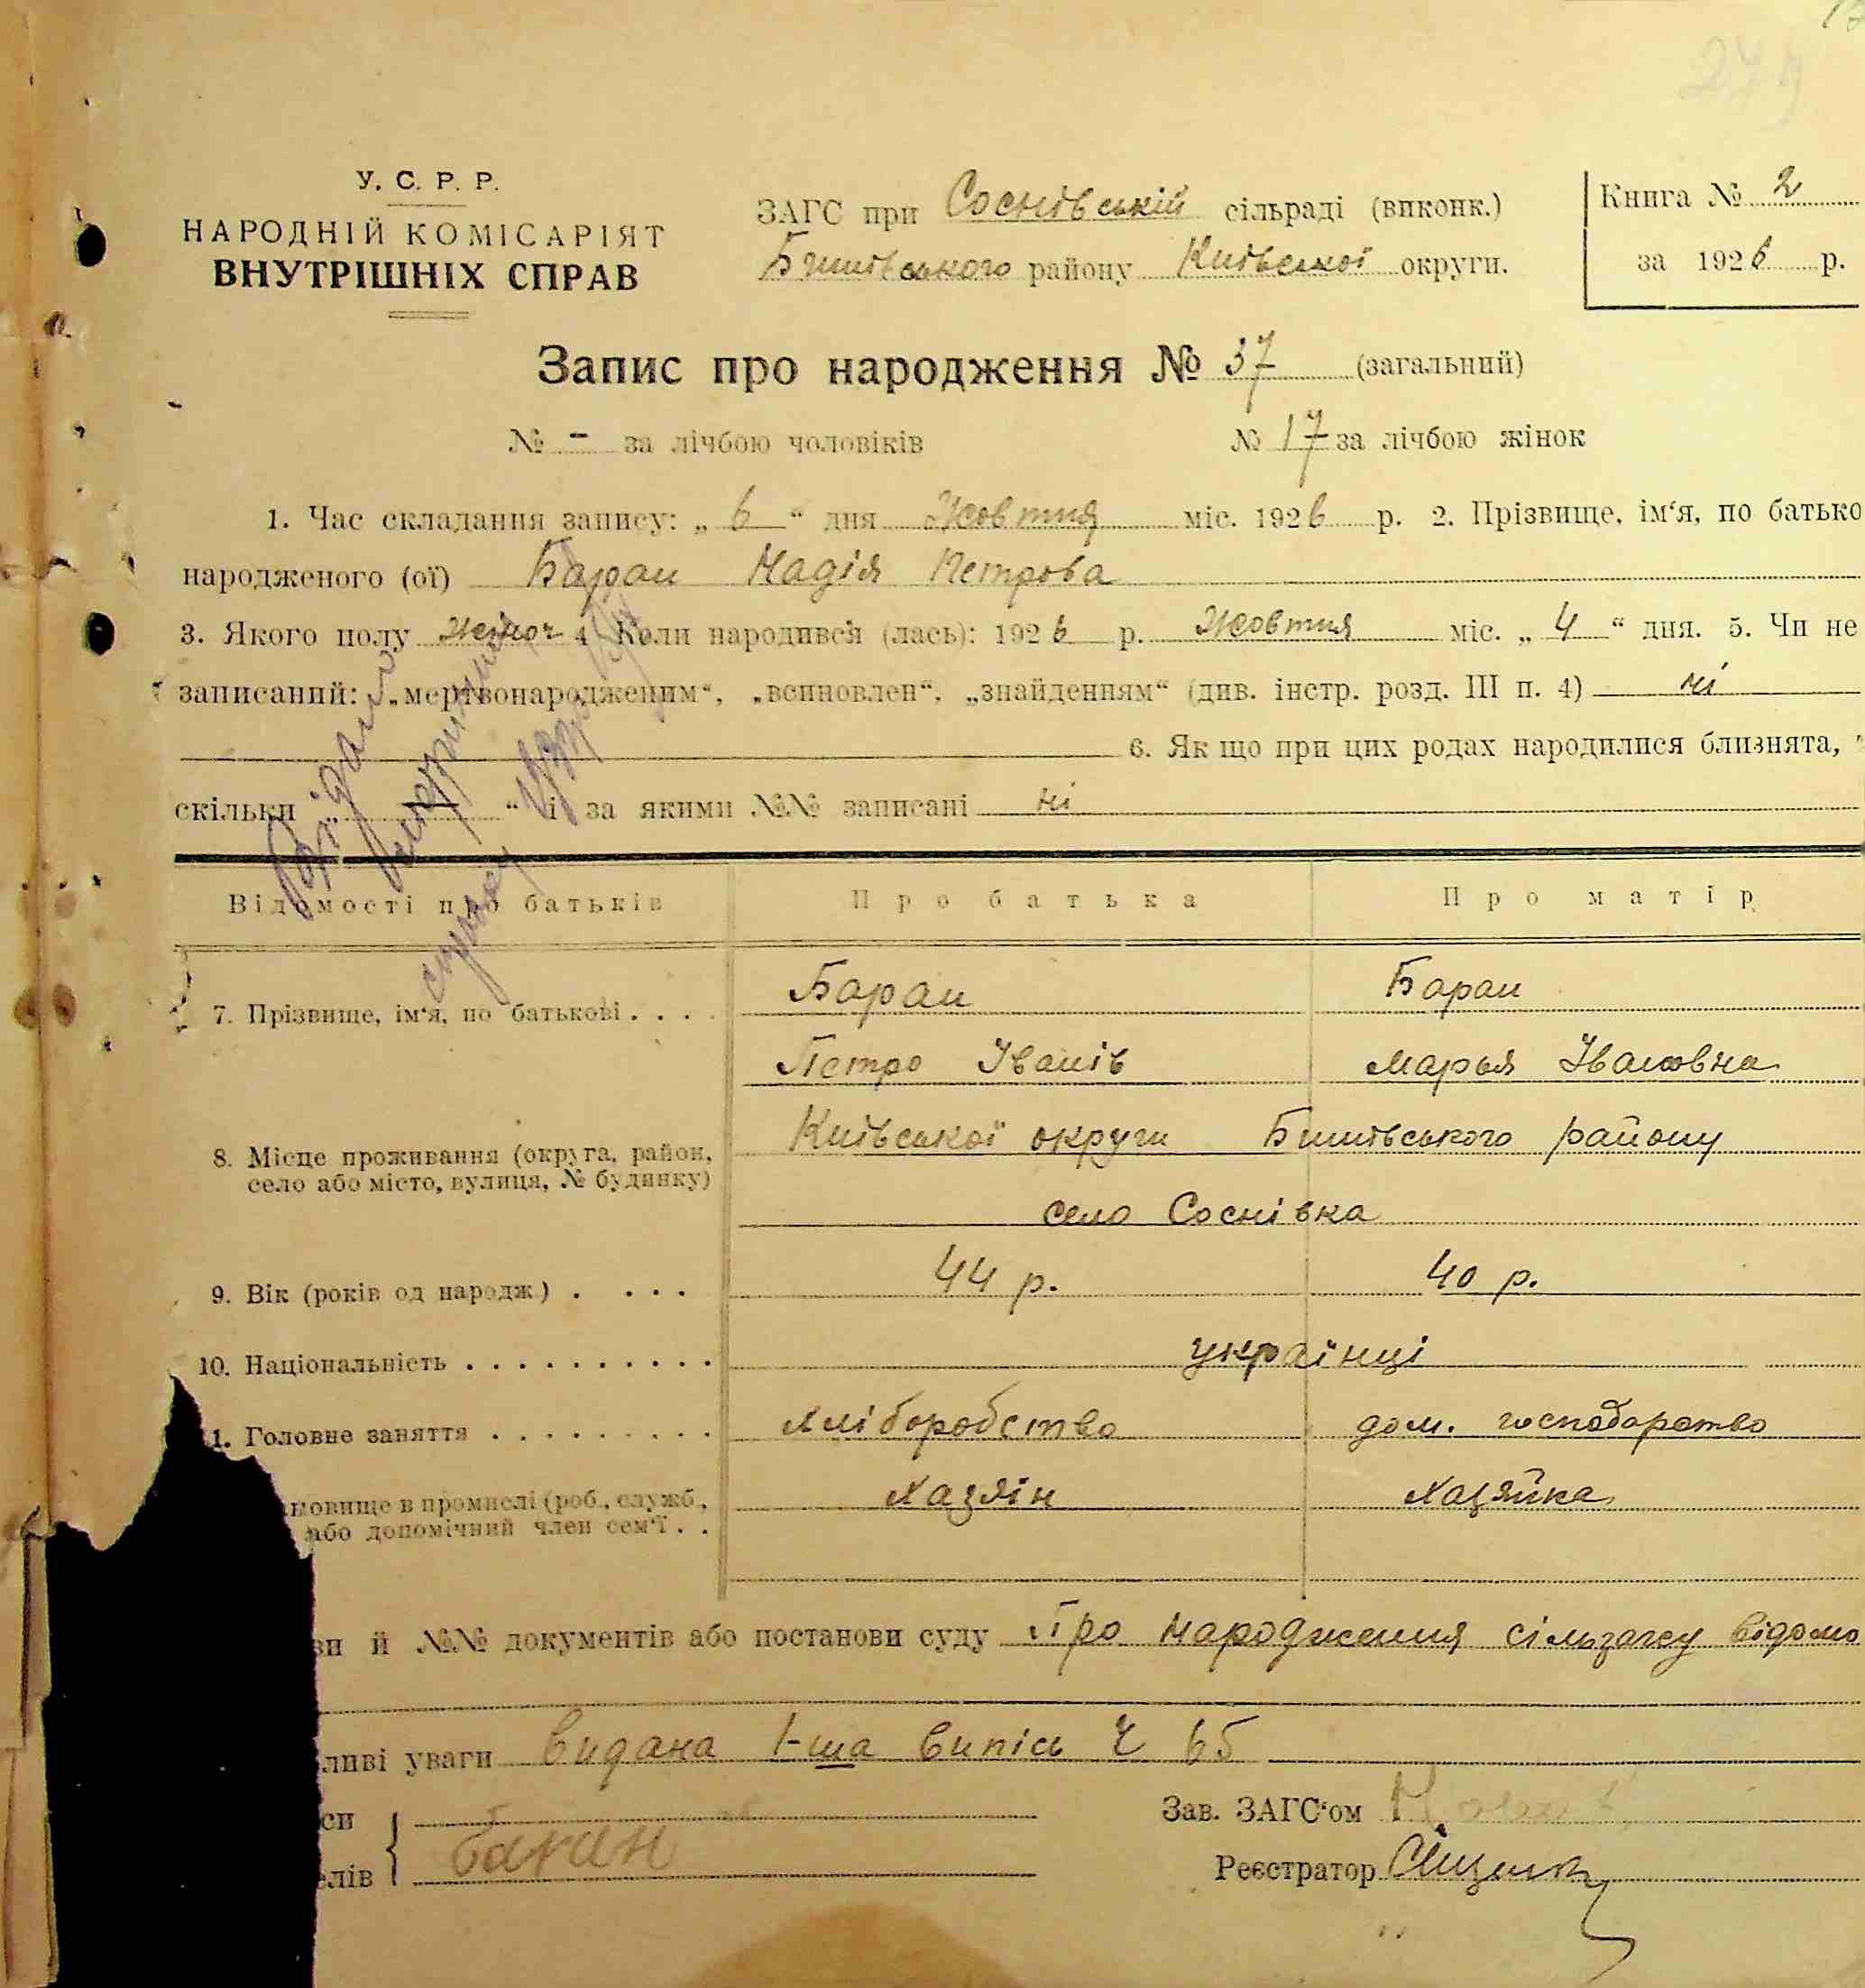 274
У. С. Р. Р.
НАРОДНІЙ КОМІСАРІЯТ
ВНУТРІШНІХ СПРАВ
ЗАГС при Соснівській сільраді (виконк.)
Бишівського району Київської округи.
Книга № 2
за 1926 р.
Запис про народження № 37 (загальний)
№ - за лічбою чоловіків № 17 за лічбою жінок
1. Час складання запису: „ 6 “ дня Жовтня міс. 1926 р. 2. Прізвище, ім‘я, по батько
народженого (ої) Баран Надія Петрова
3. Якого полу жіноч 4 Коли народився (лась): 1926 р. Жовтня міс. „ 4 “ дня. 5. Чи не
записаний: „мертвонародженим“, „всиновлен“, „знайденням“ (див. інстр. розд. III п. 4) ні
6. Як що при цих родах народилися близнята,
скільки „ — “ і за якими №№ записані ні
Відомості про батьків Про батька Про матір
7. Прізвище, ім‘я, по батькові . . . . Баран Баран
Петро Іванів Марья Івановна
8. Місце проживання (округа, район, Київської округи Бишівського району
село або місто, вулиця, № будинку)
село Соснівка
9. Вік (років од народж) . . . . 44 р. 40 р.
10. Національність . . . . . . . . . . . українці
1. Головне заняття . . . . . . . . . хліборобство дом. господарство
новище в промислі (роб., служб., хазяїн хазяйка
або допомічний член сем‘ї . .
ви й №№ документів або постанови суду Про народження сільзагсу відомо
ливі уваги Видана 1-ша випісь Ч 65
си
елів Баран
Зав. ЗАГС‘ом
Реєстратор